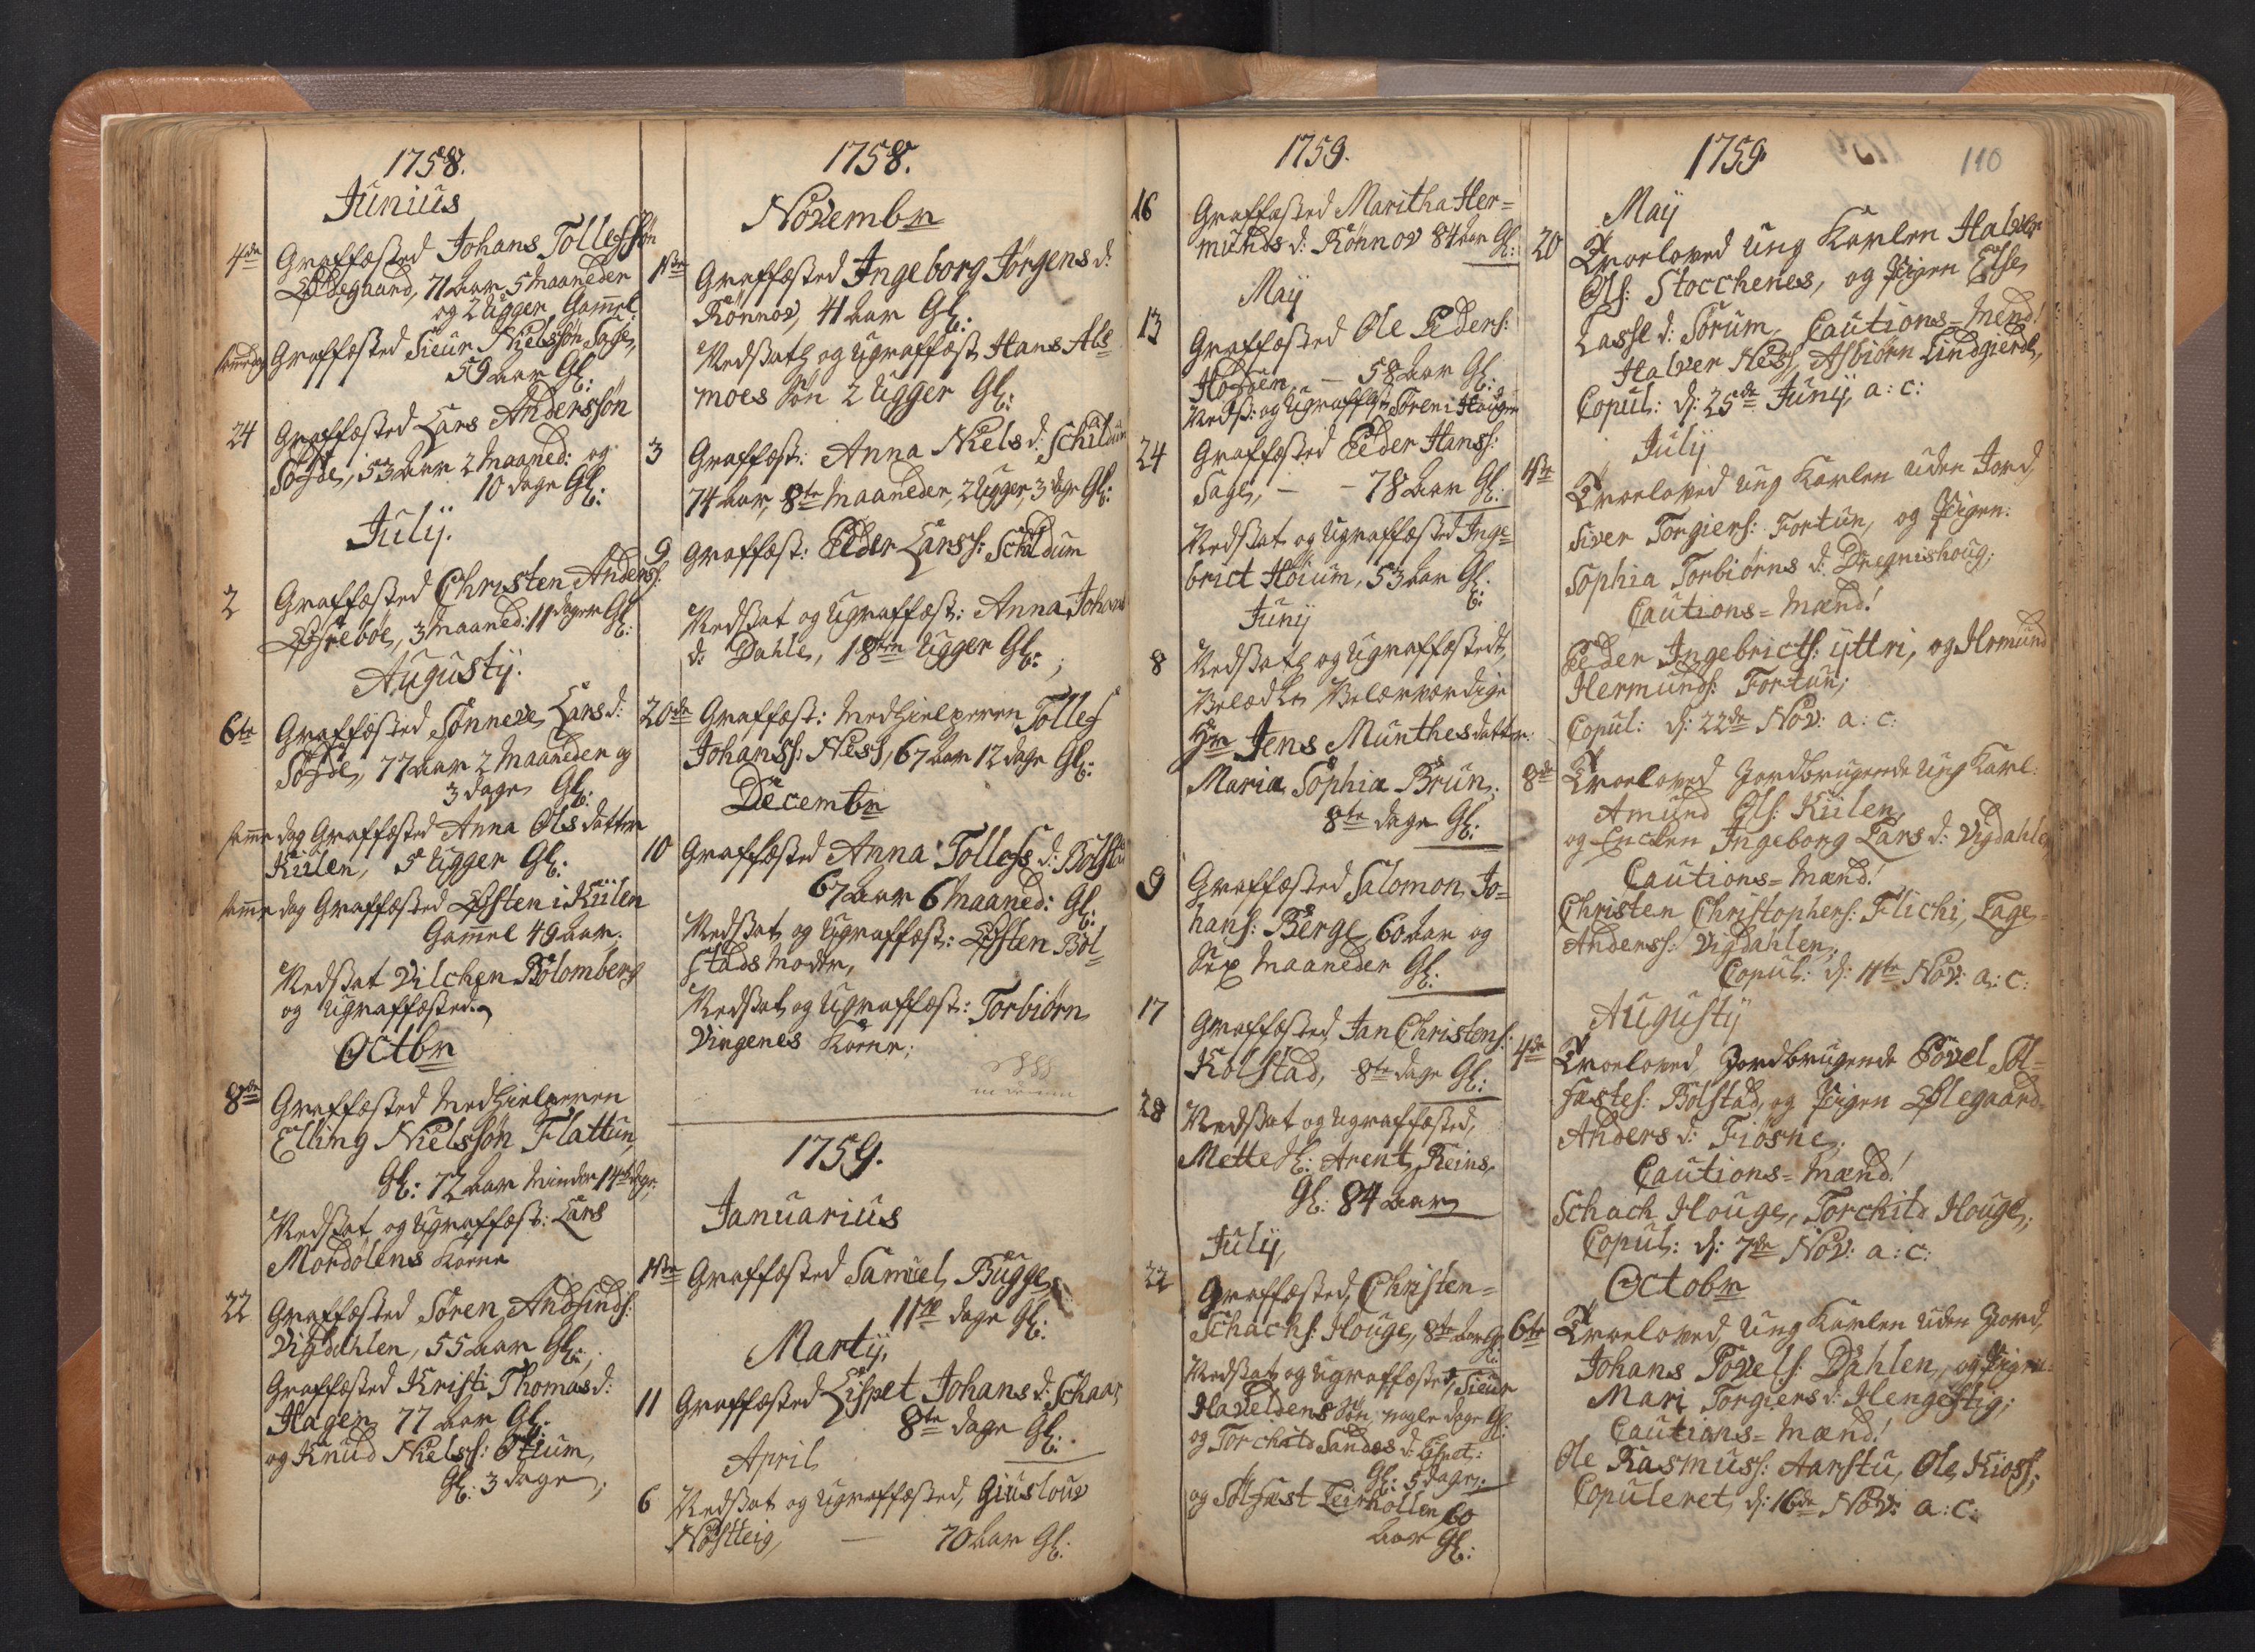 1758.
Junius
4de Graffæsted Johans Tollefssön
Ødegaard, 71 aar 5 maaneder
og 2 Uger Gammel
samme dag Graffæsted Sieur Nielssön Sage,
59 aar Gl:
24 Graffæsted Lars Anderssön
Söfde, 53 aar 2 Maaned: og
10 dage Gl:
Julij.
2 Graffæsted Christen Anderss:
Øfrebøe, 3 Maaned: 11 dager Gl:
Augustij.
6te Graffæsted Sönneve Lars d:
Söfde, 77 aar 2 Maaneder og
3 dage Gl:
samme dag Graffæsted Anna Ols datter
Kiilen, 5 Ugger Gl:
samme dag Graffæsted Østen i Kiilen
Gammel 49 aar.
Nedsat Vilchen Blomberg
og Ugraffæsted.
Octbr
8de Graffæsted Medhielperen
Elling Nielssön Flattun,
Gl: 72 aar minder 14 dage,
Nedsat og Ugraffæst: Lars
Mordölens Kone
22 Graffæsted Sören Andfinds:
Vigdahlen, 55 aar Gl:
Graffæsted Kristi Thomas d:
Hagen 77 aar Gl:
og Knud Nielss: Otium,
Gl: 3 dage;
1758.
Novembr
1ste Graffæsted Ingeborg Jörgens d:
Rönnov, 41 aar Gl:
Nedsath og Ugraffæst Hans Als
moes Sön 2 Ugger Gl:
3 Graffæst: Anna Niels d: Schildum
74 aar, 8te Maaneder, 2 Ugger, 3 dage Gl:
9 Graffæst: Peder Larss: Schildum
Nedsat og Ugraffæst: Anna Johans
d: Dahle, 18ten Ugger Gl:;
20de Graffæst: Medhielperen Tollef
Johanss: Ness, 67 aar 12 dage Gl:
Decembr
10 Graffæsted Anna Tollefs d: Bolstad
67 aar 6 Maaned: Gl:
Nedsat og Ugraffæst: Østen Bol-
stads Moder,
Nedsat og Ugraffæst: Torbiörn
Vingenes Kone;
1759.
Januarius
1ste Graffæsted Samuel Bugge,
11te dage Gl:
Martij,
11 Graffæsted Lispet Johans d: Schaar
8te dage Gl:
April
6 Nedsat og Ugraffæsted, Giuslouv
Nössteig, — 70 aar Gl:
1759.
16 Graffæsted Maritha Her=
munds d: Rönnov 84 aar Gl:
Maij
13 Graffæsted Ole Peders:
— 58 aar Gl:
Nedss: og Ugraffæst Sören i Haugen
24 Graffæsted Peder Hanss:
Sage, — 78 aar Gl:
Nedsat og Ugraffæsted Inge=
brict Höium, 53 aar Gl:
Junij
8 Nedsath og Ugraffæstedt,
Velædle Velærværdige
Hr Jens Munthes datter
Maria Sophia Brun,
8te dage Gl:
9 Graffæsted Salomon Jo=
hans: Berge, 60 aar og
Sex Maaneder Gl:
17 Graffæsted Jan Christens:
Kolstad, 8te dage Gl:
28 Nedsat og Ugraffæsted,
Mette Sl: Arent Reins,
Gl: 84 aar
Julij,
22 Graffæsted, Christen=
Schachs: Houge, 8te aar Gl:
Nedsat og Ugraffæsted, Sieur
Haveldens Sön, nogle dage Gl:
og Torchild Sandes d: Lispet:
Gl: 5 dage:
og Sölfæst Leirhollen 60
aar Gl:
1759 110
Maij
20 Troeloved Ung Karlen Halver
Ols: Stocchenes, og Pigen Else
Lasse d: Sörum, Cautions=Mend!
Halver Ness, Asbiörn Lindgierde,
Copul: d: 25de Junij a: c:
Julij
1ste Troeloved Ung Karlen uden Jord
Siver Torgiers: Fortun, og Pigen:
Sophia Torbiörns d: Drægnishoug;
Cautions=Mænd!
Peder Ingebricts: ÿttri, og Hermund
Hermunds: Fortun;
Copul: d: 22de Nov: a: c:
8de Troeloved Jordbrugende Ung Karl
Amund Ols: Kiilen
og Encken Ingeborg Lars d: Vigdahlen
Cautions=Mænd!
Christen Christophers: Flichi, Tage
Anderss: Vigdahlen,
Copul: d: 11te Nov: a: c:
Augustij
4de Troeloved Jordbrugende Povel Söl=
fæstes: Bolstad, og Pigen Ølegaard
Anders d: Fiösne,
Cautions=Mænd!
Schach Houge, Torchild Houge,
Copul: d: 7de Nov: a: c:
Octobr
6te Troeloved, Ung Karlen uden Jord,
Johans Povels: Dahlen, og Pigen
Mari Torgiers d: Hengestig;
Cautions=Mænd!
Ole Rasmuss: Aarstu, Ole Kioss;
Copuleret, d: 16de Nov: a: c: